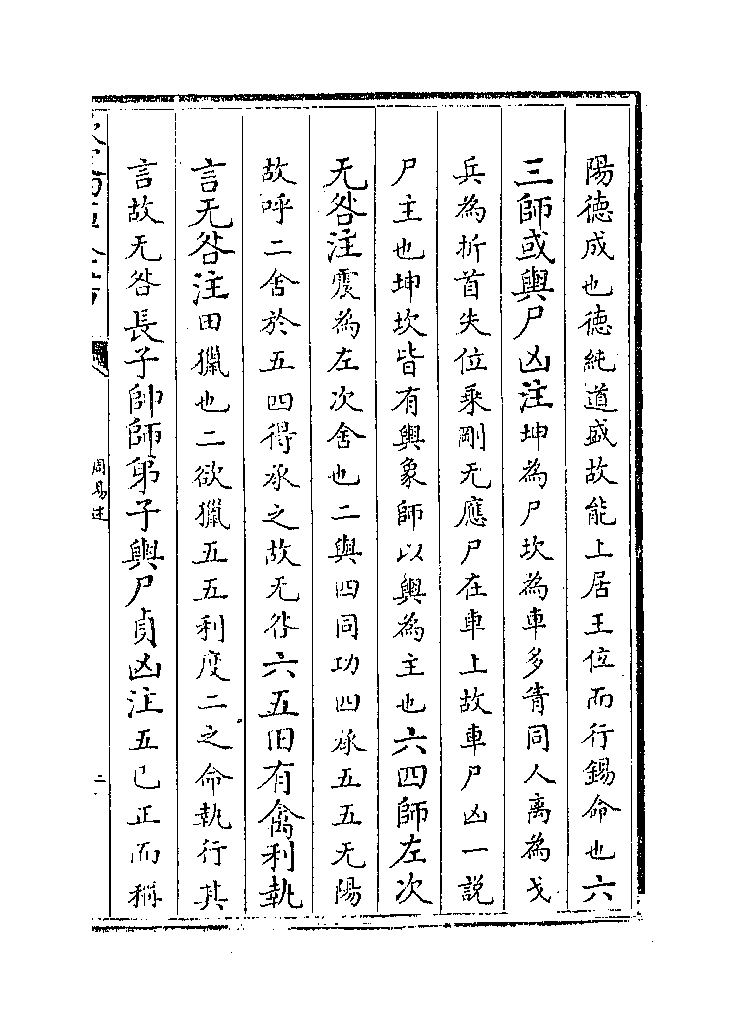 陽徳成也徳純道盛故能上居王位而行錫命也六
三師或輿尸凶注坤為尸坎為車多眚同人離為戈
兵為折首失位乘剛无應尸在車上故車尸凶一説
尸主也坤坎皆有輿象師以輿為主也六四師左次
无咎注震為左次舍也二與四同功四承五五无陽
故呼二舍於五四得承之故无咎六五田有禽利執
言无咎注田獵也二欲獵五五利度二之命執行其
言故无咎長子帥師弟子輿尸貞凶注五已正而稱
周易述
二